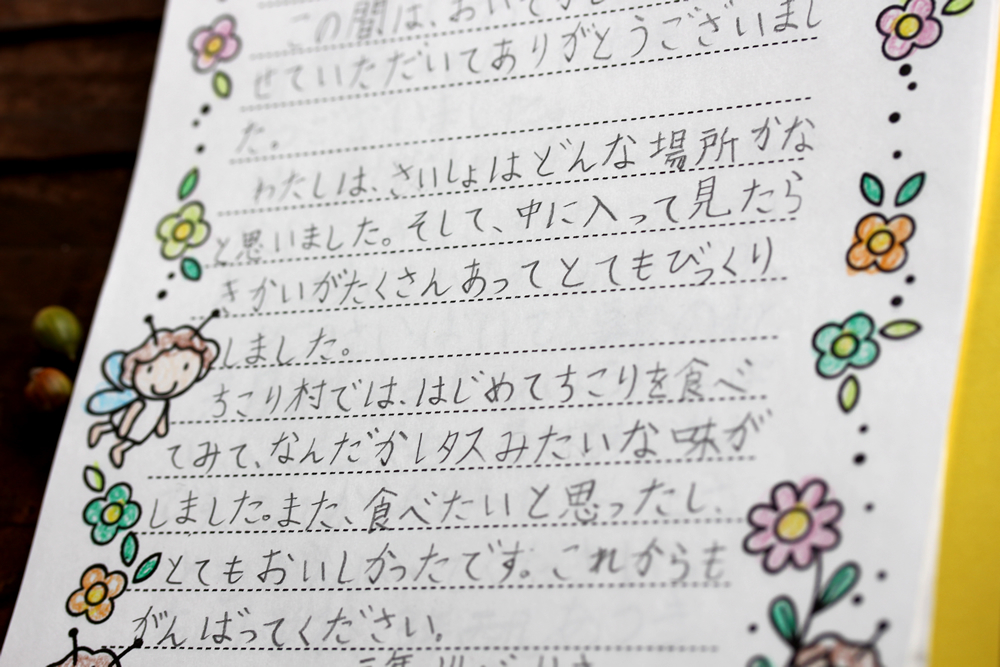 この間は、おい
せていただいてありがとうございまし
た。
わたしは、さいしょはどんな場所かな
と思いました。そして、中に入って見たら
きかいがたくさんあってとてもびっくり
しました。
ちこり村では、はじめてちこりを食べ
てみて、なんだかレタスみたいな味が
しました。また、食べたいと思ったし、
とてもおいしかったです。これからも
がんばってください。